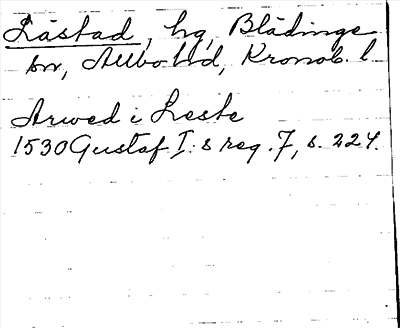 Låstad, hg, Blädinge
sn, Allbo hd, Kronob. l.
Arwed i Leste
1530 Gustaf I:s reg. 7, s. 224.